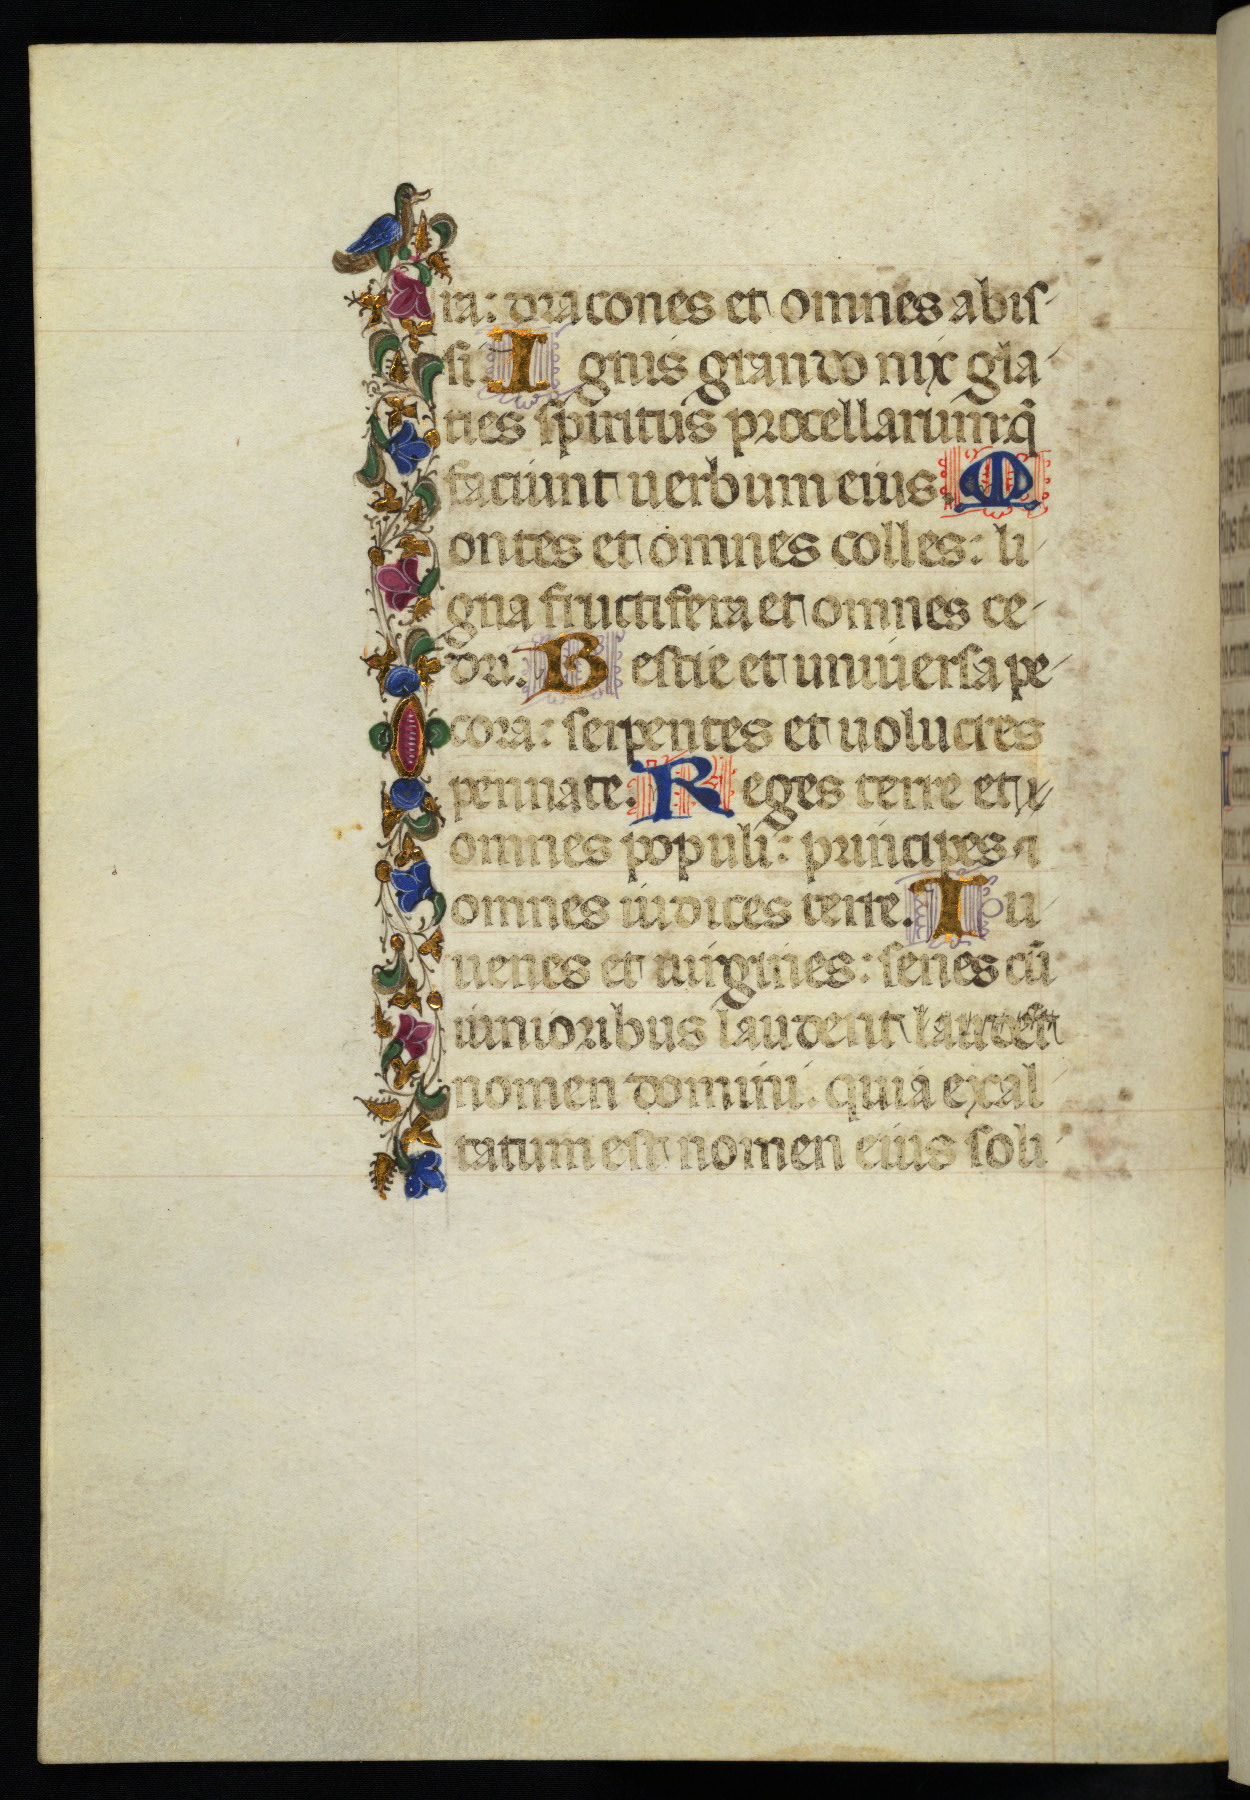 ra: dracones et omnes abis
si. Ignis grando nix gla
ties spiritus procellarum: q̄
faciunt uerbum eius. M
ontes et omnes colles: li
gna fructifera et omnes ce
dri. Bestie et uniuersa pe
cora: serpentes et uolucres
pennate. Reges terre et
omnes populi: principes ⁊
omnes iudices terre. Iu
uenes et uirgines: senes cū
iunioribus laudent laudēt
nomen domini. quia exal
tatum est nomen eius soli